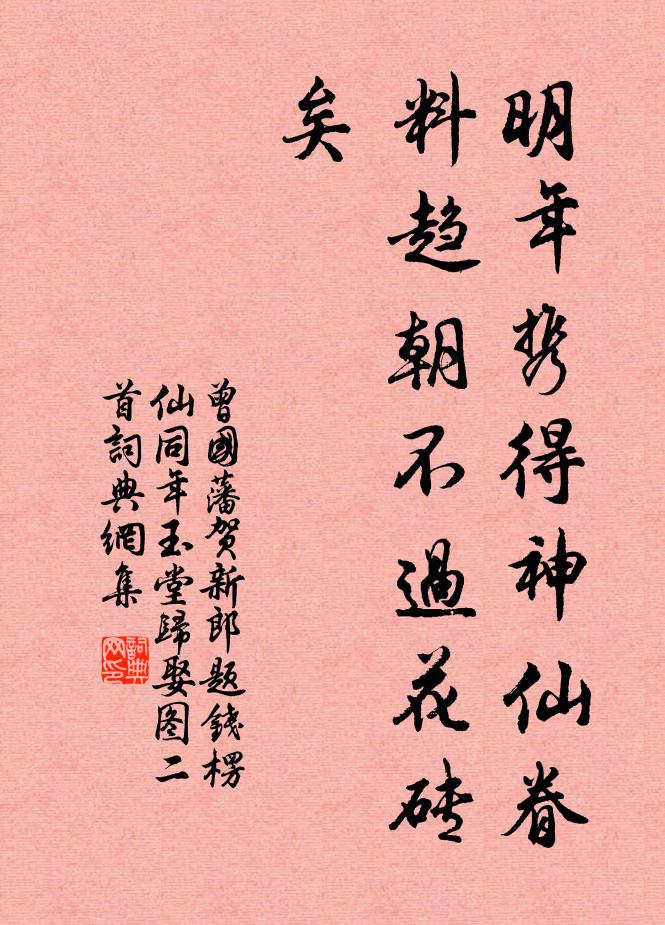 明年携得神仙眷
料趋朝不過花砖
矣
曾國藩贺新郎题錢楞
仙同年玉堂歸娶图二
首詞典網集
詞典
网印